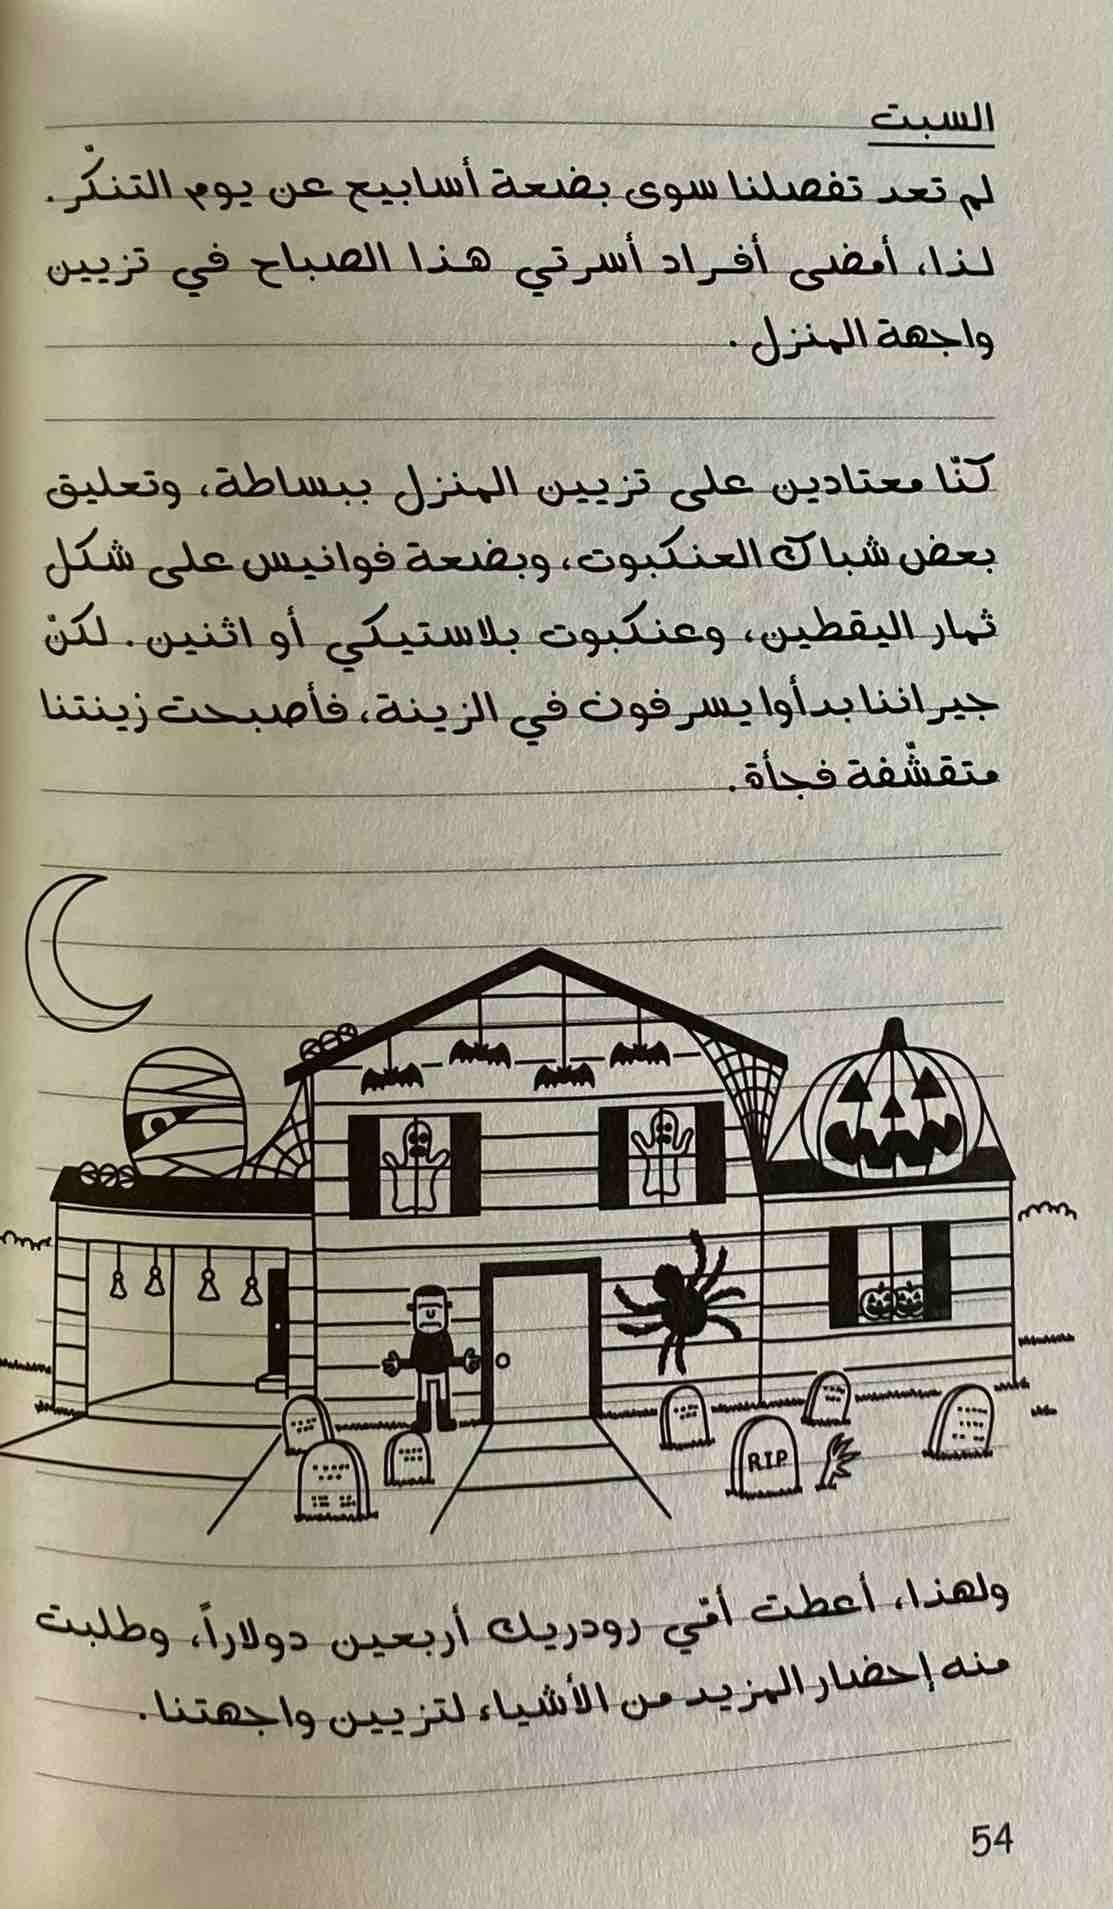 السبت
لم تعد تفصلنا سوى بضعة أسابيع عن يوم التنكّر.
لذا، أمضى أفراد أسرتي هذا الصباح في تزيين
واجهة المنزل.
كنّا معتادين على تزيين المنزل ببساطة، وتعليق
بعض شباك العنكبوت، وبضعة فوانيس على شكل
ثمار اليقطين، وعنكبوت بلاستيكي أو اثنين. لكنّ
جيراننا بدأوا يسرفون في الزينة، فأصبحت زينتنا
متقشّفة فجأة.
RIP
ولهذا، أعطت أمّي رودريك أربعين دولاراً، وطلبت
منه إحضار المزيد من الأشياء لتزيين واجهتنا.
54